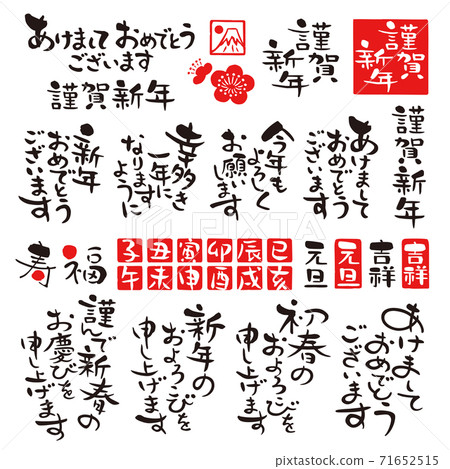 あけまして おめでとう
ございます
謹賀新年
謹賀
新年
謹賀
新年
謹賀新年
あけまして
おめでとう
ございます
今年も
よろしく
お願いします
幸多き
一年に
なります
ように
新年
おめでとう
ございます
寿
福
子丑寅卯辰巳
午未申酉戌亥
元旦
元旦
吉祥
吉祥
あけまして
おめでとう
ございます
初春の
およろこびを
申し上げます
新年の
およろこびを
申し上げます
謹んで新春の
お慶びを
申し上げます
71652515